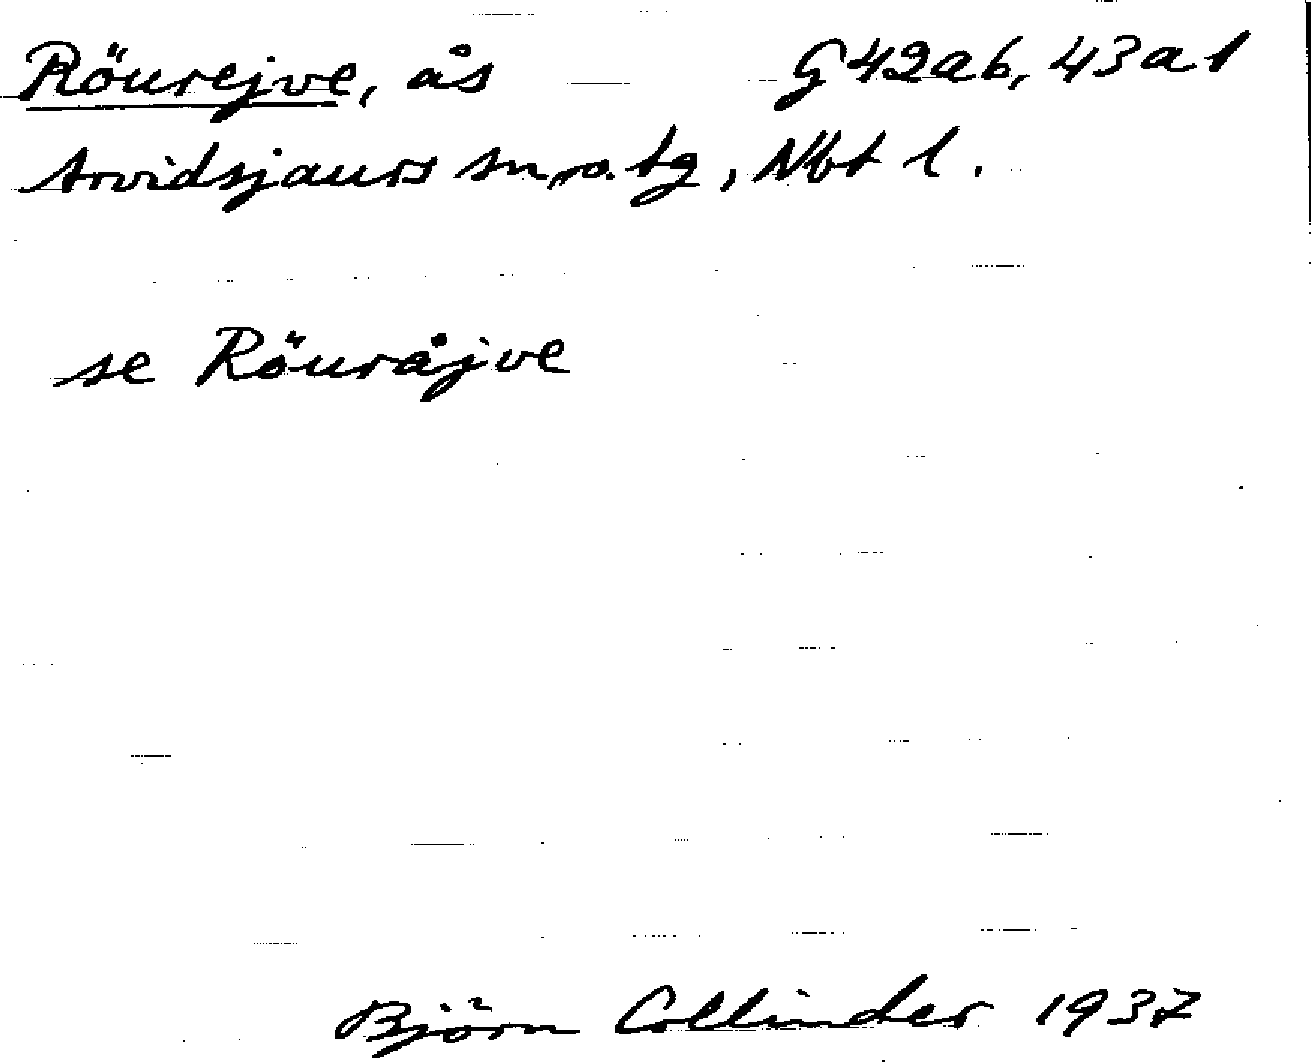 Röurejve, ås G 42ab, 43a1
Arvidsjaurs sn o. tg, Nbt l.
se Röuråjve
Björn Collinder 1937